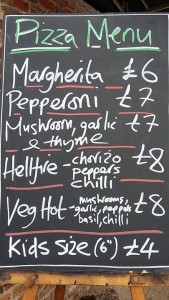 Pizza Menu
Margherita £6
Pepperoni £7
Mushroom, garlic £7
& thyme
Hellfire - chorizo £8
peppers
chilli
Veg Hot - mushrooms £8
garlic, peppers
basil, chilli
Kids Size (6") £4